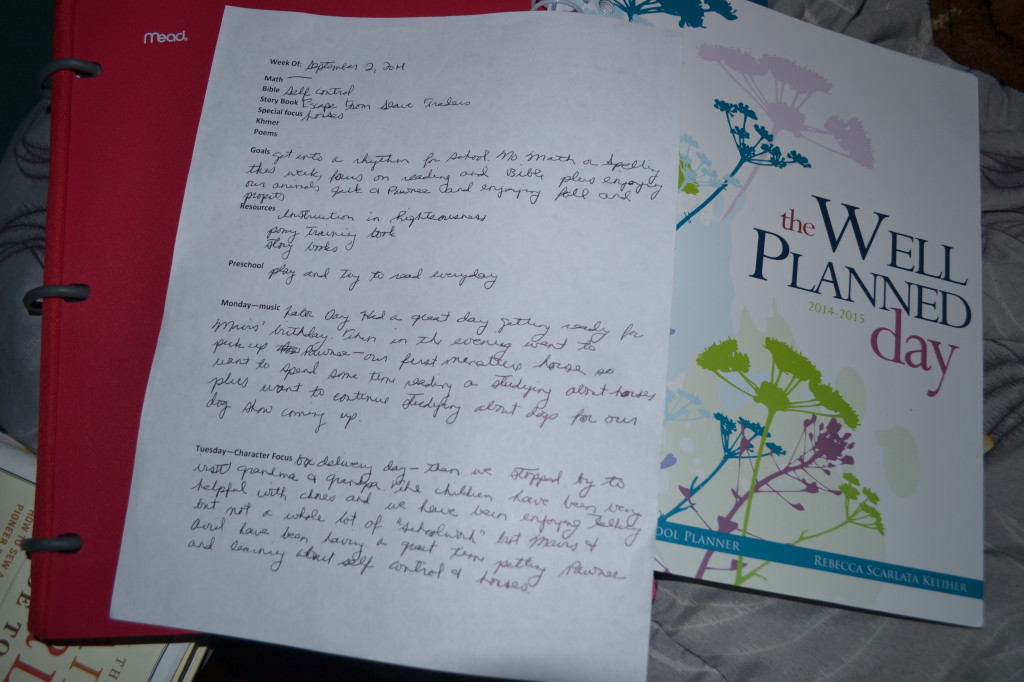 Mead
Week Of: September 2, 2014
Math
Bible Self control
Story Book Escape from Slave Traders
Special focus horses
Khmer
Poems
Goals get into a rhythm for school No Math or Spelling
this week, focus on reading and Bible, plus enjoying
our animals & Pawnee and enjoying fall and
projects
Resources
instruction in righteousness
pony training book
story books
Preschool play and try to read everyday
Monday—music Labor Day Had a great day getting ready for
Mairs' birthday. Then in the evening went to
pick up Pawnee—our first horse so
want to spend some time reading & studying about horses
plus want to continue studying about dogs for our
dog show coming up.
Tuesday—Character Focus box delivery day—then we stopped by to
visit grandma & grandpa. The children have been very
helpful with chores and we have been enjoying
but not a whole lot of "schoolwork" but Mairs &
Avril have been having a great time petting Pawnee
and learning about self control & horses
the WELL
PLANNED
2014-2015
day
OOL PLANNER
REBECCA SCARLATA KELIHER
HOW TO SEW A
PIONEER